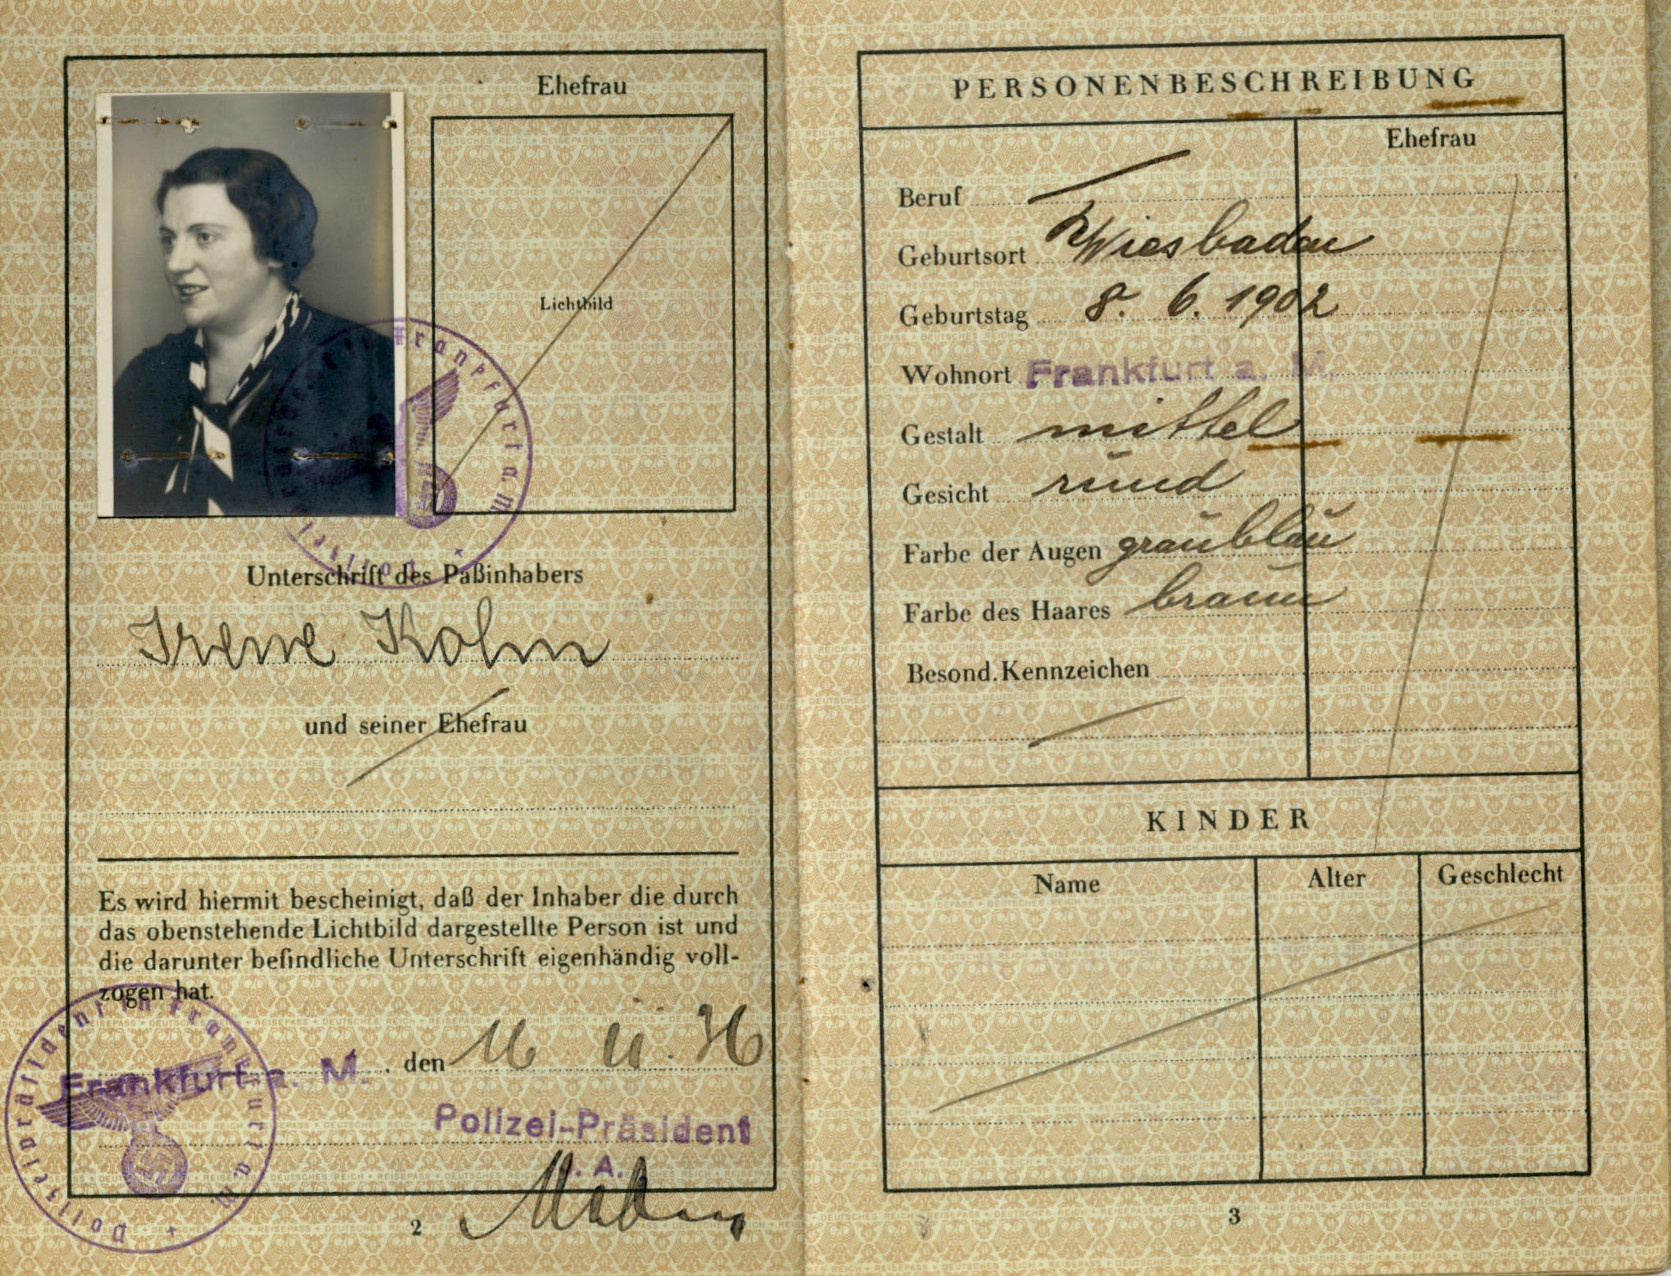 Ehefrau
Lichtbild
Polizeipräsident in Frankfurt a. M.
Unterschrift des Paßinhabers
Irene Kohn
und seiner Ehefrau
Es wird hiermit bescheinigt, daß der Inhaber die durch
das obenstehende Lichtbild dargestellte Person ist und
die darunter befindliche Unterschrift eigenhändig voll-
zogen hat.
Polizeipräsident in Frankfurt a. M.
Frankfurt a. M. , den 36
Polizei-Präsident
I. A.
2
PERSONENBESCHREIBUNG
Ehefrau
Beruf
Geburtsort Wiesbaden
Geburtstag 8. 6. 1902
Wohnort Frankfurt a. M.
Gestalt mittel
Gesicht rund
Farbe der Augen graublau
Farbe des Haares braun
Besond. Kennzeichen
KINDER
Name Alter Geschlecht
3